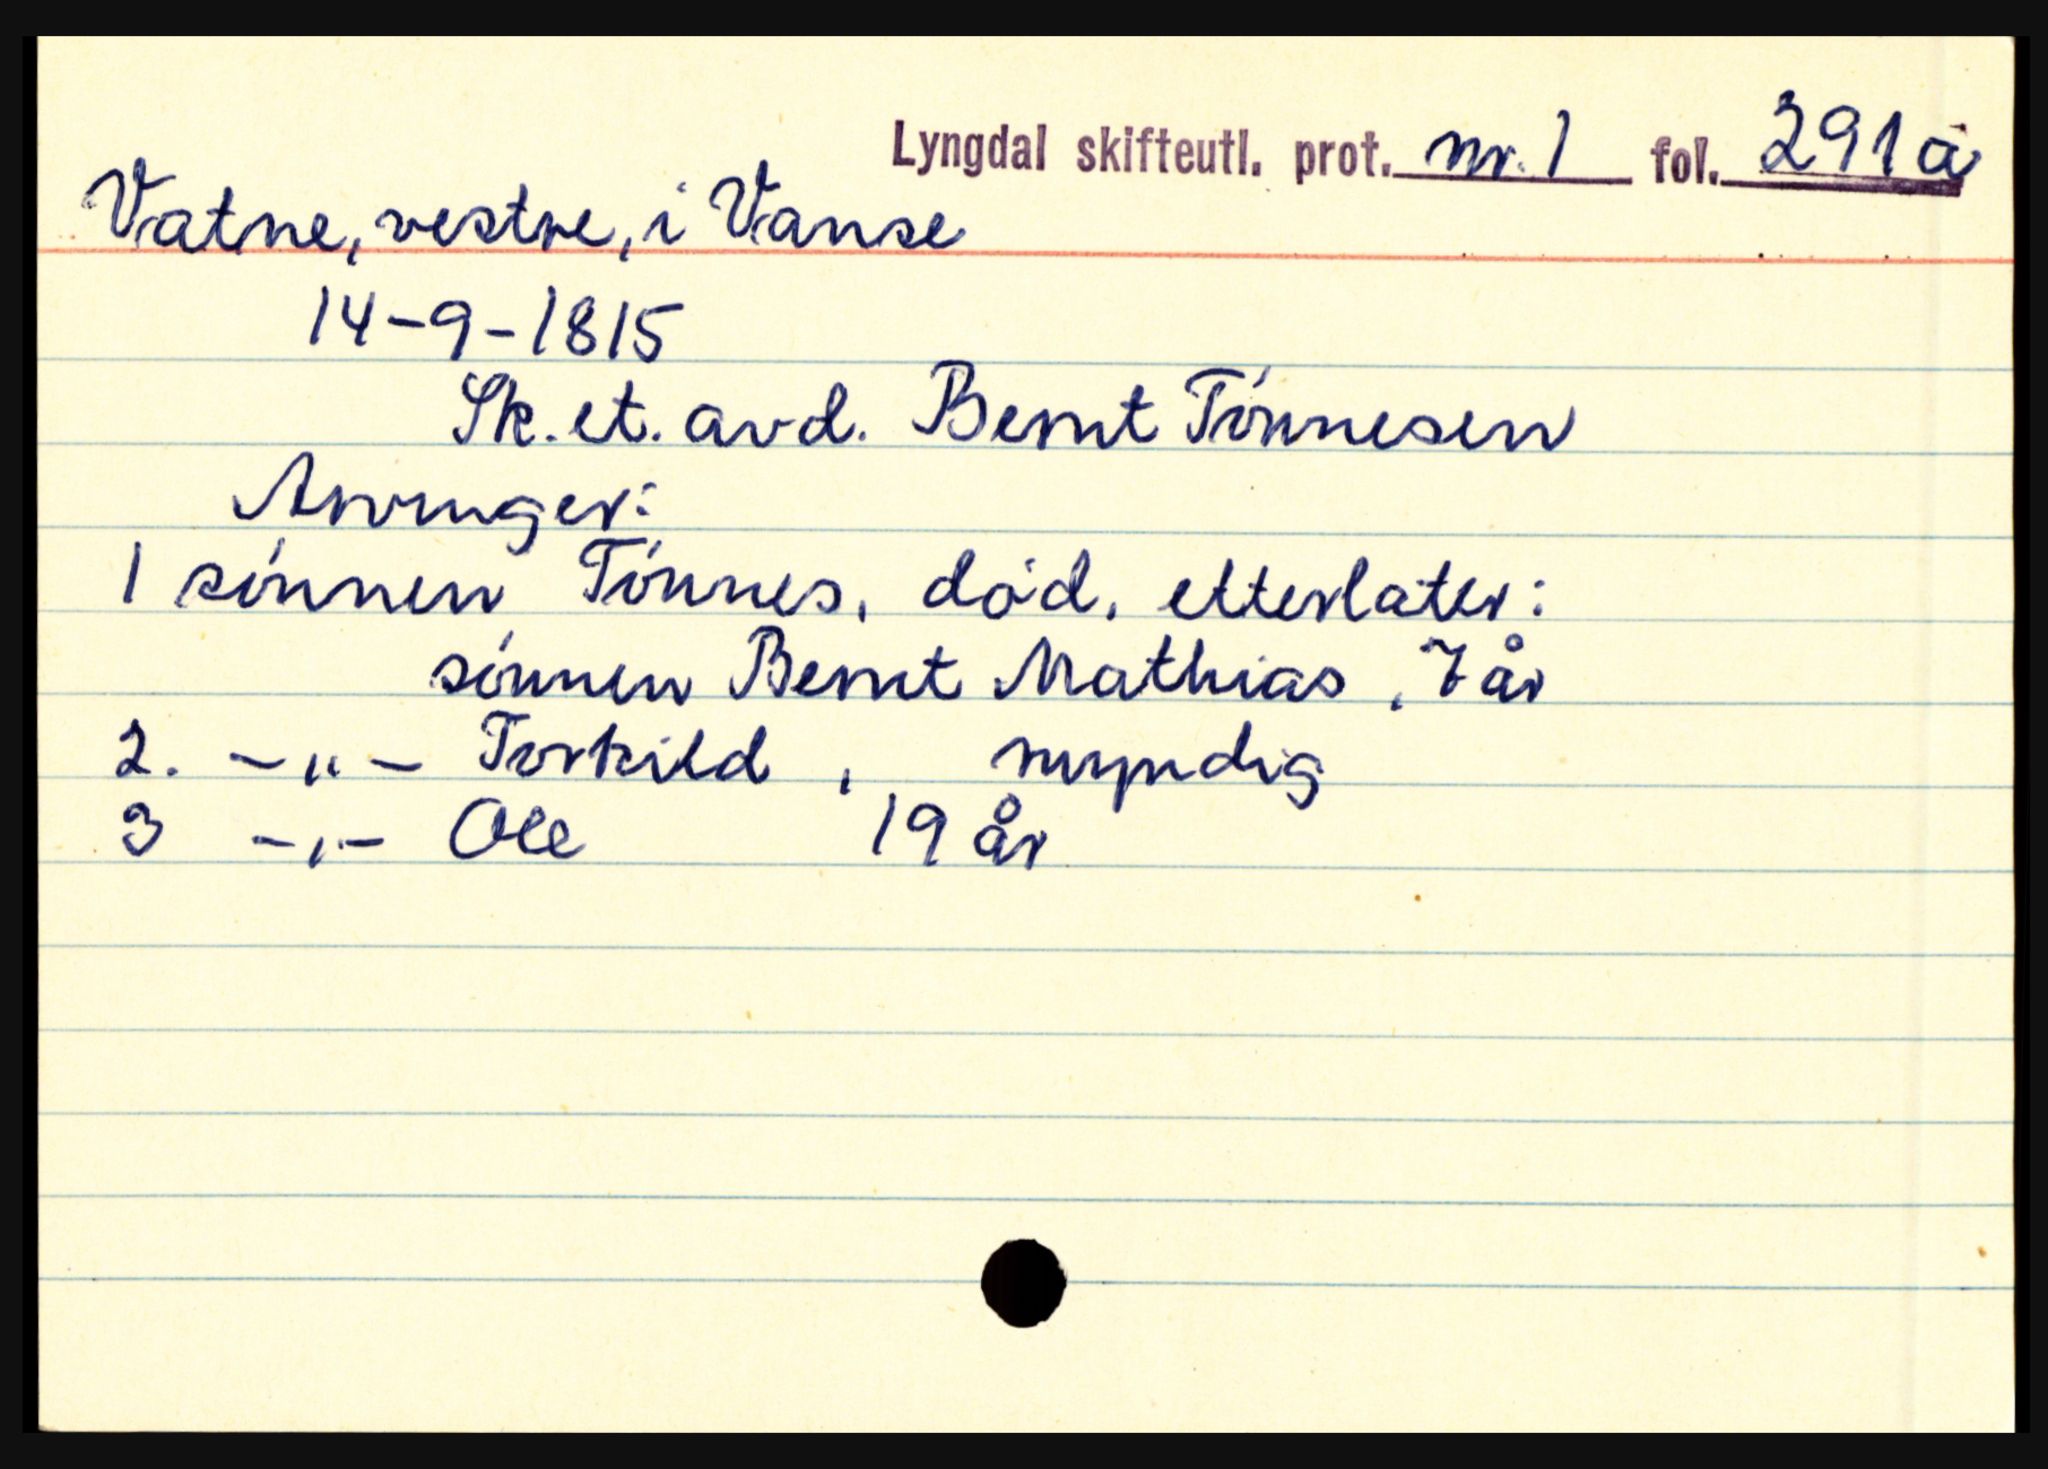 Lyngdal skifteutl. prot. nr. 1 fol. 291 a
Vatne, vestre, i Vanse
14-9-1815
Sk. et. avd. Bernt Tønnesen
Arvinger:
1 sønnen Tønnes, død, etterlater:
sønnen Bernt Mathias, 7 år
2. -„- Torkild, myndig
3 -„- Ole 19 år